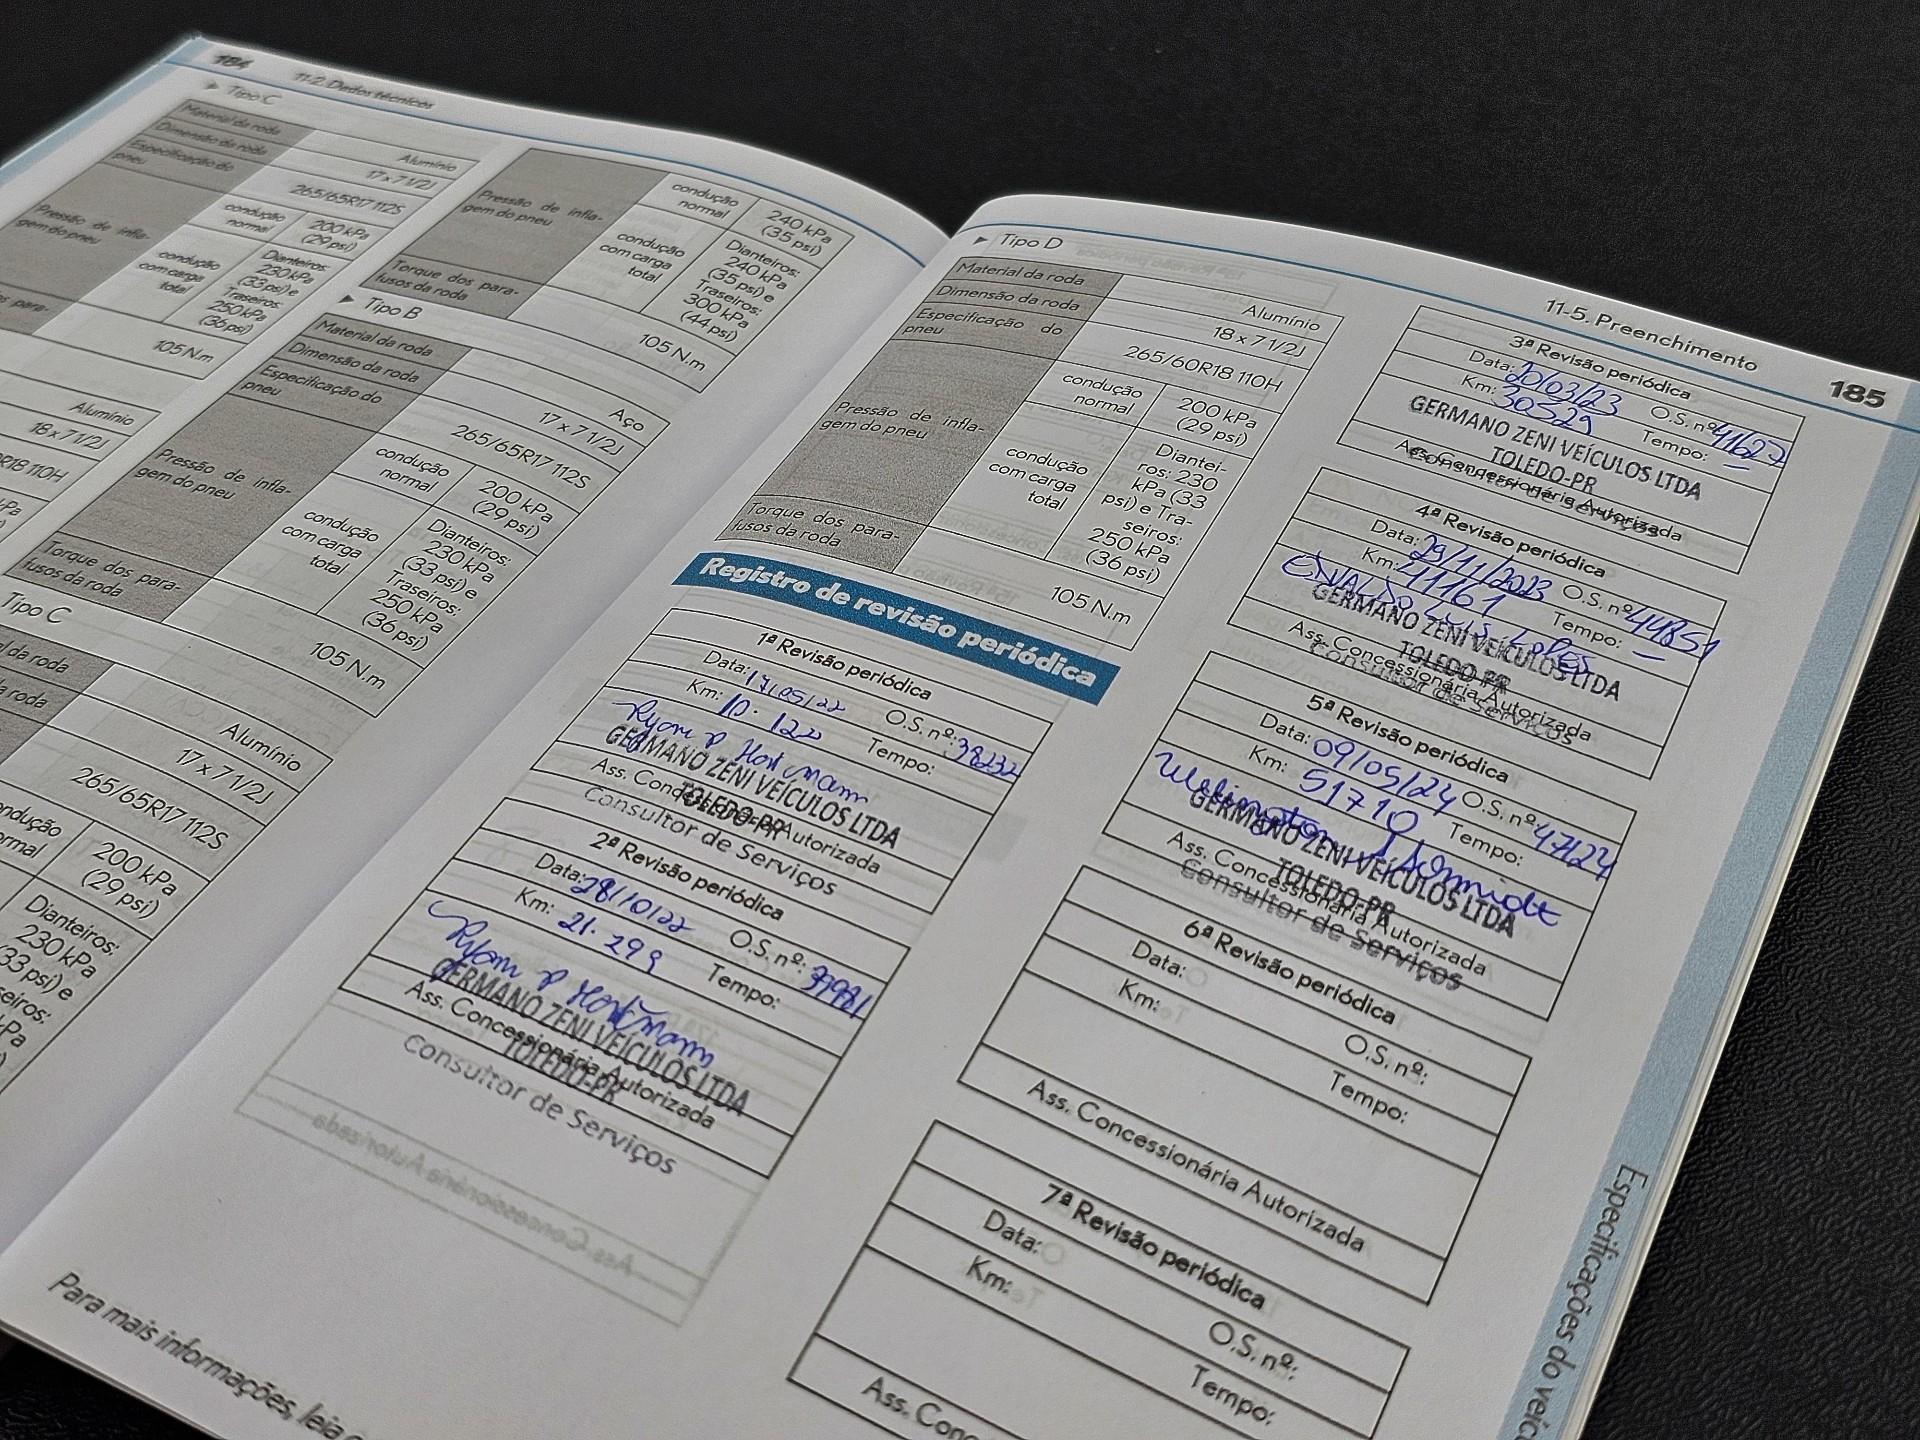 184
11-2. Dados técnicos
Tipo C
Material da roda
Alumínio
Dimensão da roda
17 x 7 1/2J
Especificação do pneu
265/65R17 112S
Pressão de inflagem do pneu
condução normal
200 kPa (29 psi)
condução com carga total
Dianteiros: 230 kPa (33 psi) e Traseiros: 250 kPa (36 psi)
105 N.m
Alumínio
18 x 7 1/2J
R18 110H
Tipo C
da roda
Alumínio
da roda
17 x 7 1/2J
265/65R17 112S
200 kPa (29 psi)
Dianteiros: 230 kPa (33 psi) e
Pressão de inflagem do pneu
condução normal
240 kPa (35 psi)
condução com carga total
Dianteiros: 240 kPa (35 psi) e Traseiros: 300 kPa (44 psi)
Torque dos parafusos da roda
105 N.m
Tipo B
Material da roda
Aço
Dimensão da roda
17 x 7 1/2J
Especificação do pneu
265/65R17 112S
Pressão de inflagem do pneu
condução normal
200 kPa (29 psi)
condução com carga total
Dianteiros: 230 kPa (33 psi) e Traseiros: 250 kPa (36 psi)
Torque dos parafusos da roda
105 N.m
Para mais informações, leia
11-5. Preenchimento
185
Tipo D
Material da roda
Alumínio
Dimensão da roda
18 x 7 1/2J
Especificação do pneu
265/60R18 110H
Pressão de inflagem do pneu
condução normal
200 kPa (29 psi)
condução com carga total
Dianteiros: 230 kPa (33 psi) e Traseiros: 250 kPa (36 psi)
Torque dos parafusos da roda
105 N.m
Registro de revisão periódica
1ª Revisão periódica
Data: 17/05/22 O.S. nº: 38232
Km: 10.122 Tempo:
Ryan P Hortmann
GERMANO ZENI VEÍCULOS LTDA
TOLEDO-PR
Ass. Concessionária Autorizada
Consultor de Serviços
2ª Revisão periódica
Data: 28/10/22 O.S. nº:
Km: 21.299 Tempo:
Ryan P Hortmann
GERMANO ZENI VEÍCULOS LTDA
TOLEDO-PR
Ass. Concessionária Autorizada
Consultor de Serviços
3ª Revisão periódica
Data: 20/03/23 O.S. nº 41627
Km: 30529 Tempo:
GERMANO ZENI VEÍCULOS LTDA
TOLEDO-PR
Ass. Concessionária Autorizada
4ª Revisão periódica
Data: 29/11/2023 O.S. nº 44851
Km: 41161 Tempo:
GERMANO ZENI VEÍCULOS LTDA
TOLEDO-PR
Ass. Concessionária Autorizada
Consultor de Serviços
5ª Revisão periódica
Data: 09/05/24 O.S. nº: 47124
Km: 51710 Tempo:
GERMANO ZENI VEÍCULOS LTDA
TOLEDO-PR
Ass. Concessionária Autorizada
Consultor de Serviços
6ª Revisão periódica
Data: O.S. nº:
Km: Tempo:
Ass. Concessionária Autorizada
7ª Revisão periódica
Data: O.S. nº:
Km: Tempo:
Ass.
Especificações do